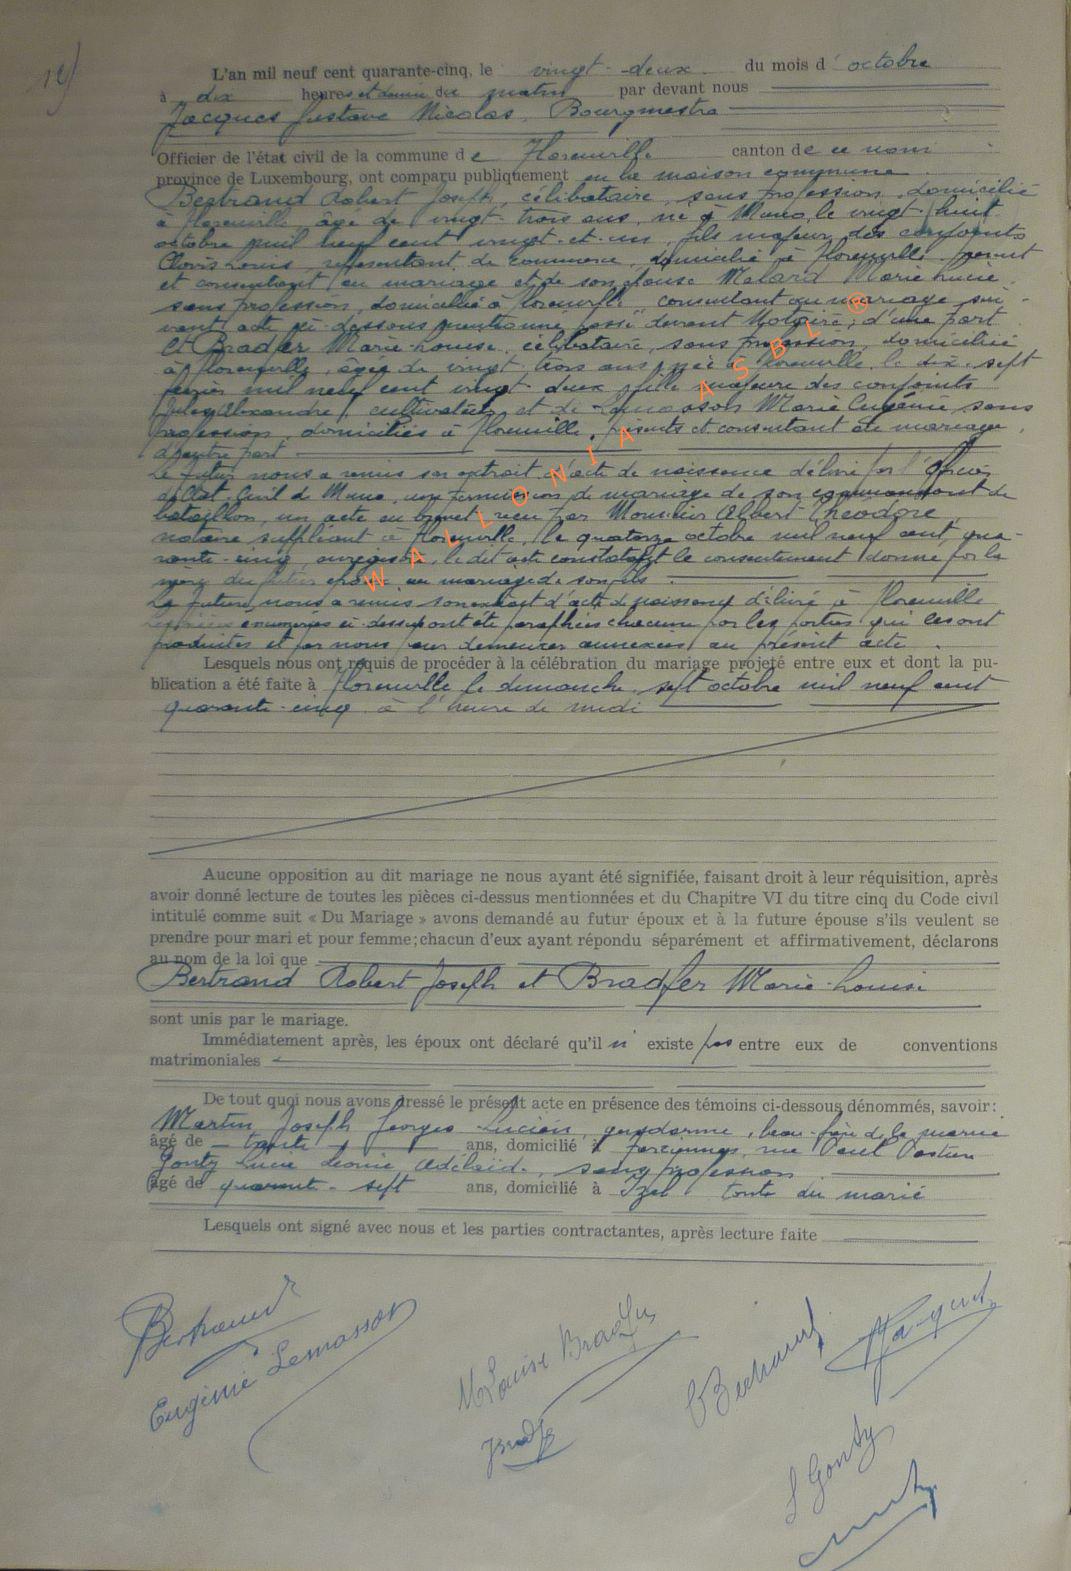 12)
L'an mil neuf cent quarante-cinq, le vingt-deux du mois d' octobre
à dix heures et demie du matin par devant nous
Jacques Gustave Nicolas, Bourgmestre
Officier de l'état civil de la commune de Florenville canton de ce nom
province de Luxembourg, ont comparu publiquement en la maison commune
Bertrand Robert Joseph, célibataire, sans profession, domicilié
à Florenville, âgé de vingt-trois ans, né à Muno, le vingt-huit
octobre mil neuf cent vingt-et-un, fils majeur des conjoints
Clovis Louis, représentant de commerce, domicilié à Florenville, présent
et consentant au mariage et de son épouse Melard Marie Lucie,
sans profession, domiciliée à Florenville, consentant au mariage sui-
vant acte ci-dessous mentionné passé devant Notaire, d'une part
Et Bradfer Marie-Louise, célibataire, sans profession, domiciliée
à Florenville, âgée de vingt-trois ans, née à Florenville, le dix-sept
février mil neuf cent vingt-deux, fille majeure des conjoints
Jules Alexandre, cultivateur, et de Lemasson Marie Eugénie, sans
profession, domiciliés à Florenville, présents et consentant au mariage,
d'autre part
Le futur nous a remis son extrait d'acte de naissance délivré par l'Officier
de l'Etat-Civil de Muno, une permission de mariage de son commandant de
bataillon, un acte en brevet reçu par Monsieur Albert Théodore
notaire suppléant à Florenville, le quatorze octobre mil neuf cent qua-
rante-cinq, enregistré, le dit acte constatant le consentement donné par la
mère du futur époux au mariage de son fils.
La future, nous a remis son extrait d'acte de naissance délivré à Florenville
Les pièces énumérées ci-dessus ont été paraphées chacune par les parties qui les ont
produites et par nous pour demeurer annexées au présent acte.
Lesquels nous ont requis de procéder à la célébration du mariage projeté entre eux et dont la pu-
blication a été faite à Florenville le dimanche sept octobre mil neuf cent
quarante-cinq à l'heure de midi
Aucune opposition au dit mariage ne nous ayant été signifiée, faisant droit à leur réquisition, après
avoir donné lecture de toutes les pièces ci-dessus mentionnées et du Chapitre VI du titre cinq du Code civil
intitulé comme suit « Du Mariage » avons demandé au futur époux et à la future épouse s'ils veulent se
prendre pour mari et pour femme; chacun d'eux ayant répondu séparément et affirmativement, déclarons
au nom de la loi que
Bertrand Robert Joseph et Bradfer Marie-Louise
sont unis par le mariage.
Immédiatement après, les époux ont déclaré qu'il n' existe pas entre eux de conventions
matrimoniales
De tout quoi nous avons dressé le présent acte en présence des témoins ci-dessous dénommés, savoir:
Martin Joseph Georges Lucien, gendarme, beau-frère de la mariée
âgé de trente ans, domicilié à Farciennes, rue Paul Pastur
Gonty Lucie Léonie Adélaïde, sans profession
âgé de quarante-sept ans, domicilié à Izel tante du marié
Lesquels ont signé avec nous et les parties contractantes, après lecture faite
Bertrand
Eugénie Lemasson
M Louise Bradfer
Bradfer
C Bertrand
Jacques
L Gonty
WALLONIA ASBL ®